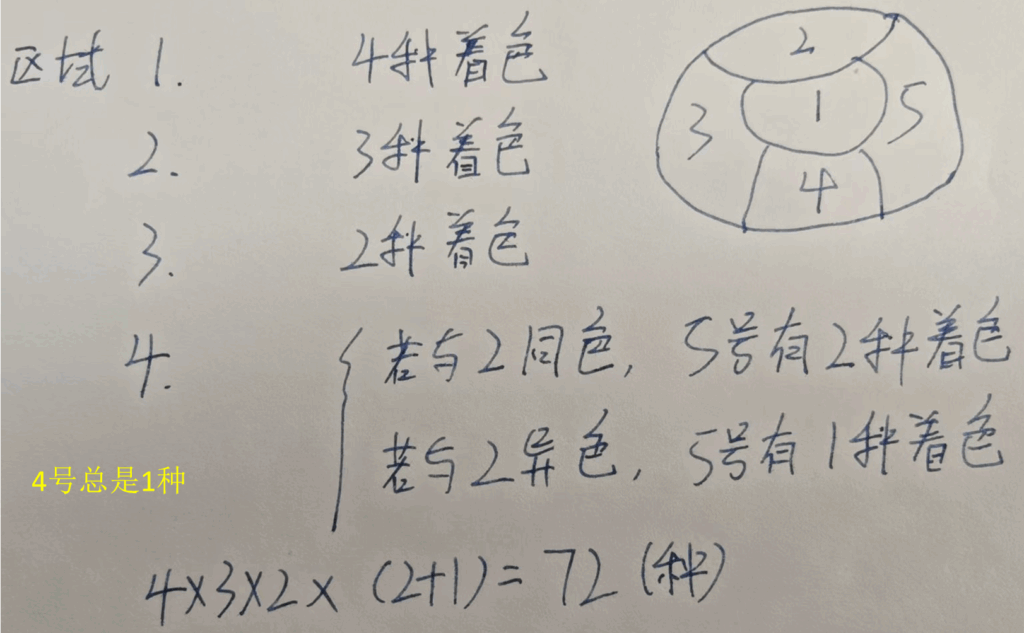 区域 1. 4种着色
2. 3种着色
3. 2种着色
4. 若与2同色, 5号有2种着色
若与2异色, 5号有1种着色
4号总是1种
4×3×2×(2+1)=72(种)
2
3
1
5
4